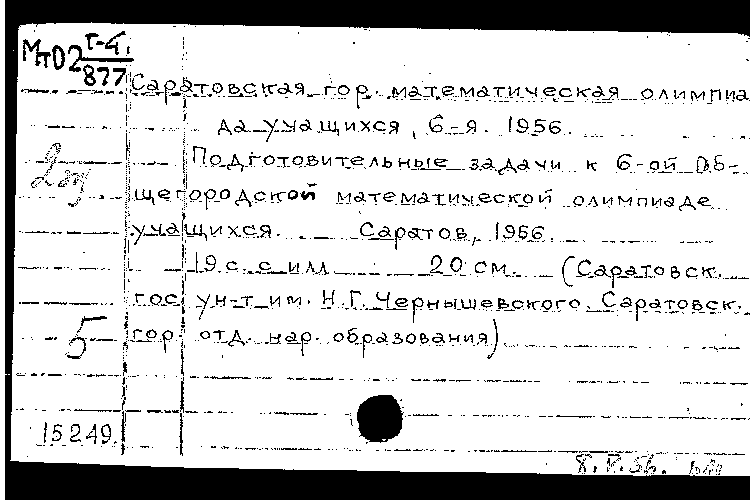 МтО2 Г-4.
877
Саратовская гор. математическая олимпиа
да учащихся, 6-я. 1956.
Подготовительные задачи к 6-ой об-
щегородской математической олимпиаде
учащихся. Саратов, 1956.
19 с. с илл 20 см. (Саратовск.
гос ун-т им. Н.Г. Чернышевского. Саратовск.
гор. отд. нар. образования)
5
15249.